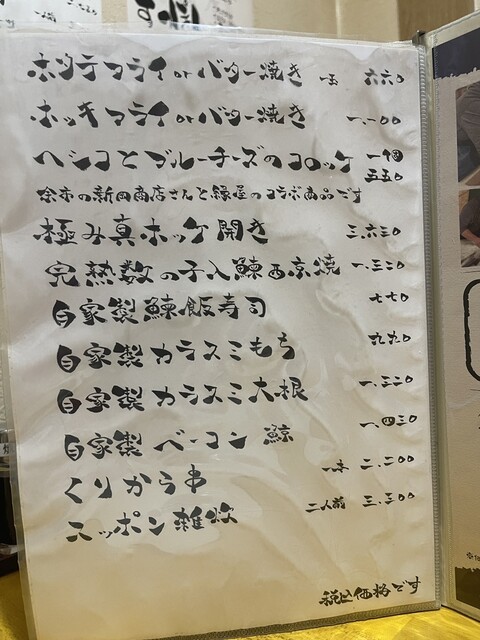 ホタテフライorバター焼き 一ヶ 六六〇
ホッキフライorバター焼き 一、一〇〇
ヘシコとブルーチーズのコロッケ 一個 五五〇
余市の新岡商店さんと縁屋のコラボ商品です
極み真ホッケ開き 三、六三〇
完熟数の子入鰊西京焼 一、三二〇
自家製鰊飯寿司 七七〇
自家製カラスミもち 九九〇
自家製カラスミ大根 一、三二〇
自家製ベーコン鯨 一、四三〇
くりから串 一本 二、二〇〇
スッポン雑炊 二人前 三、三〇〇
税込価格です